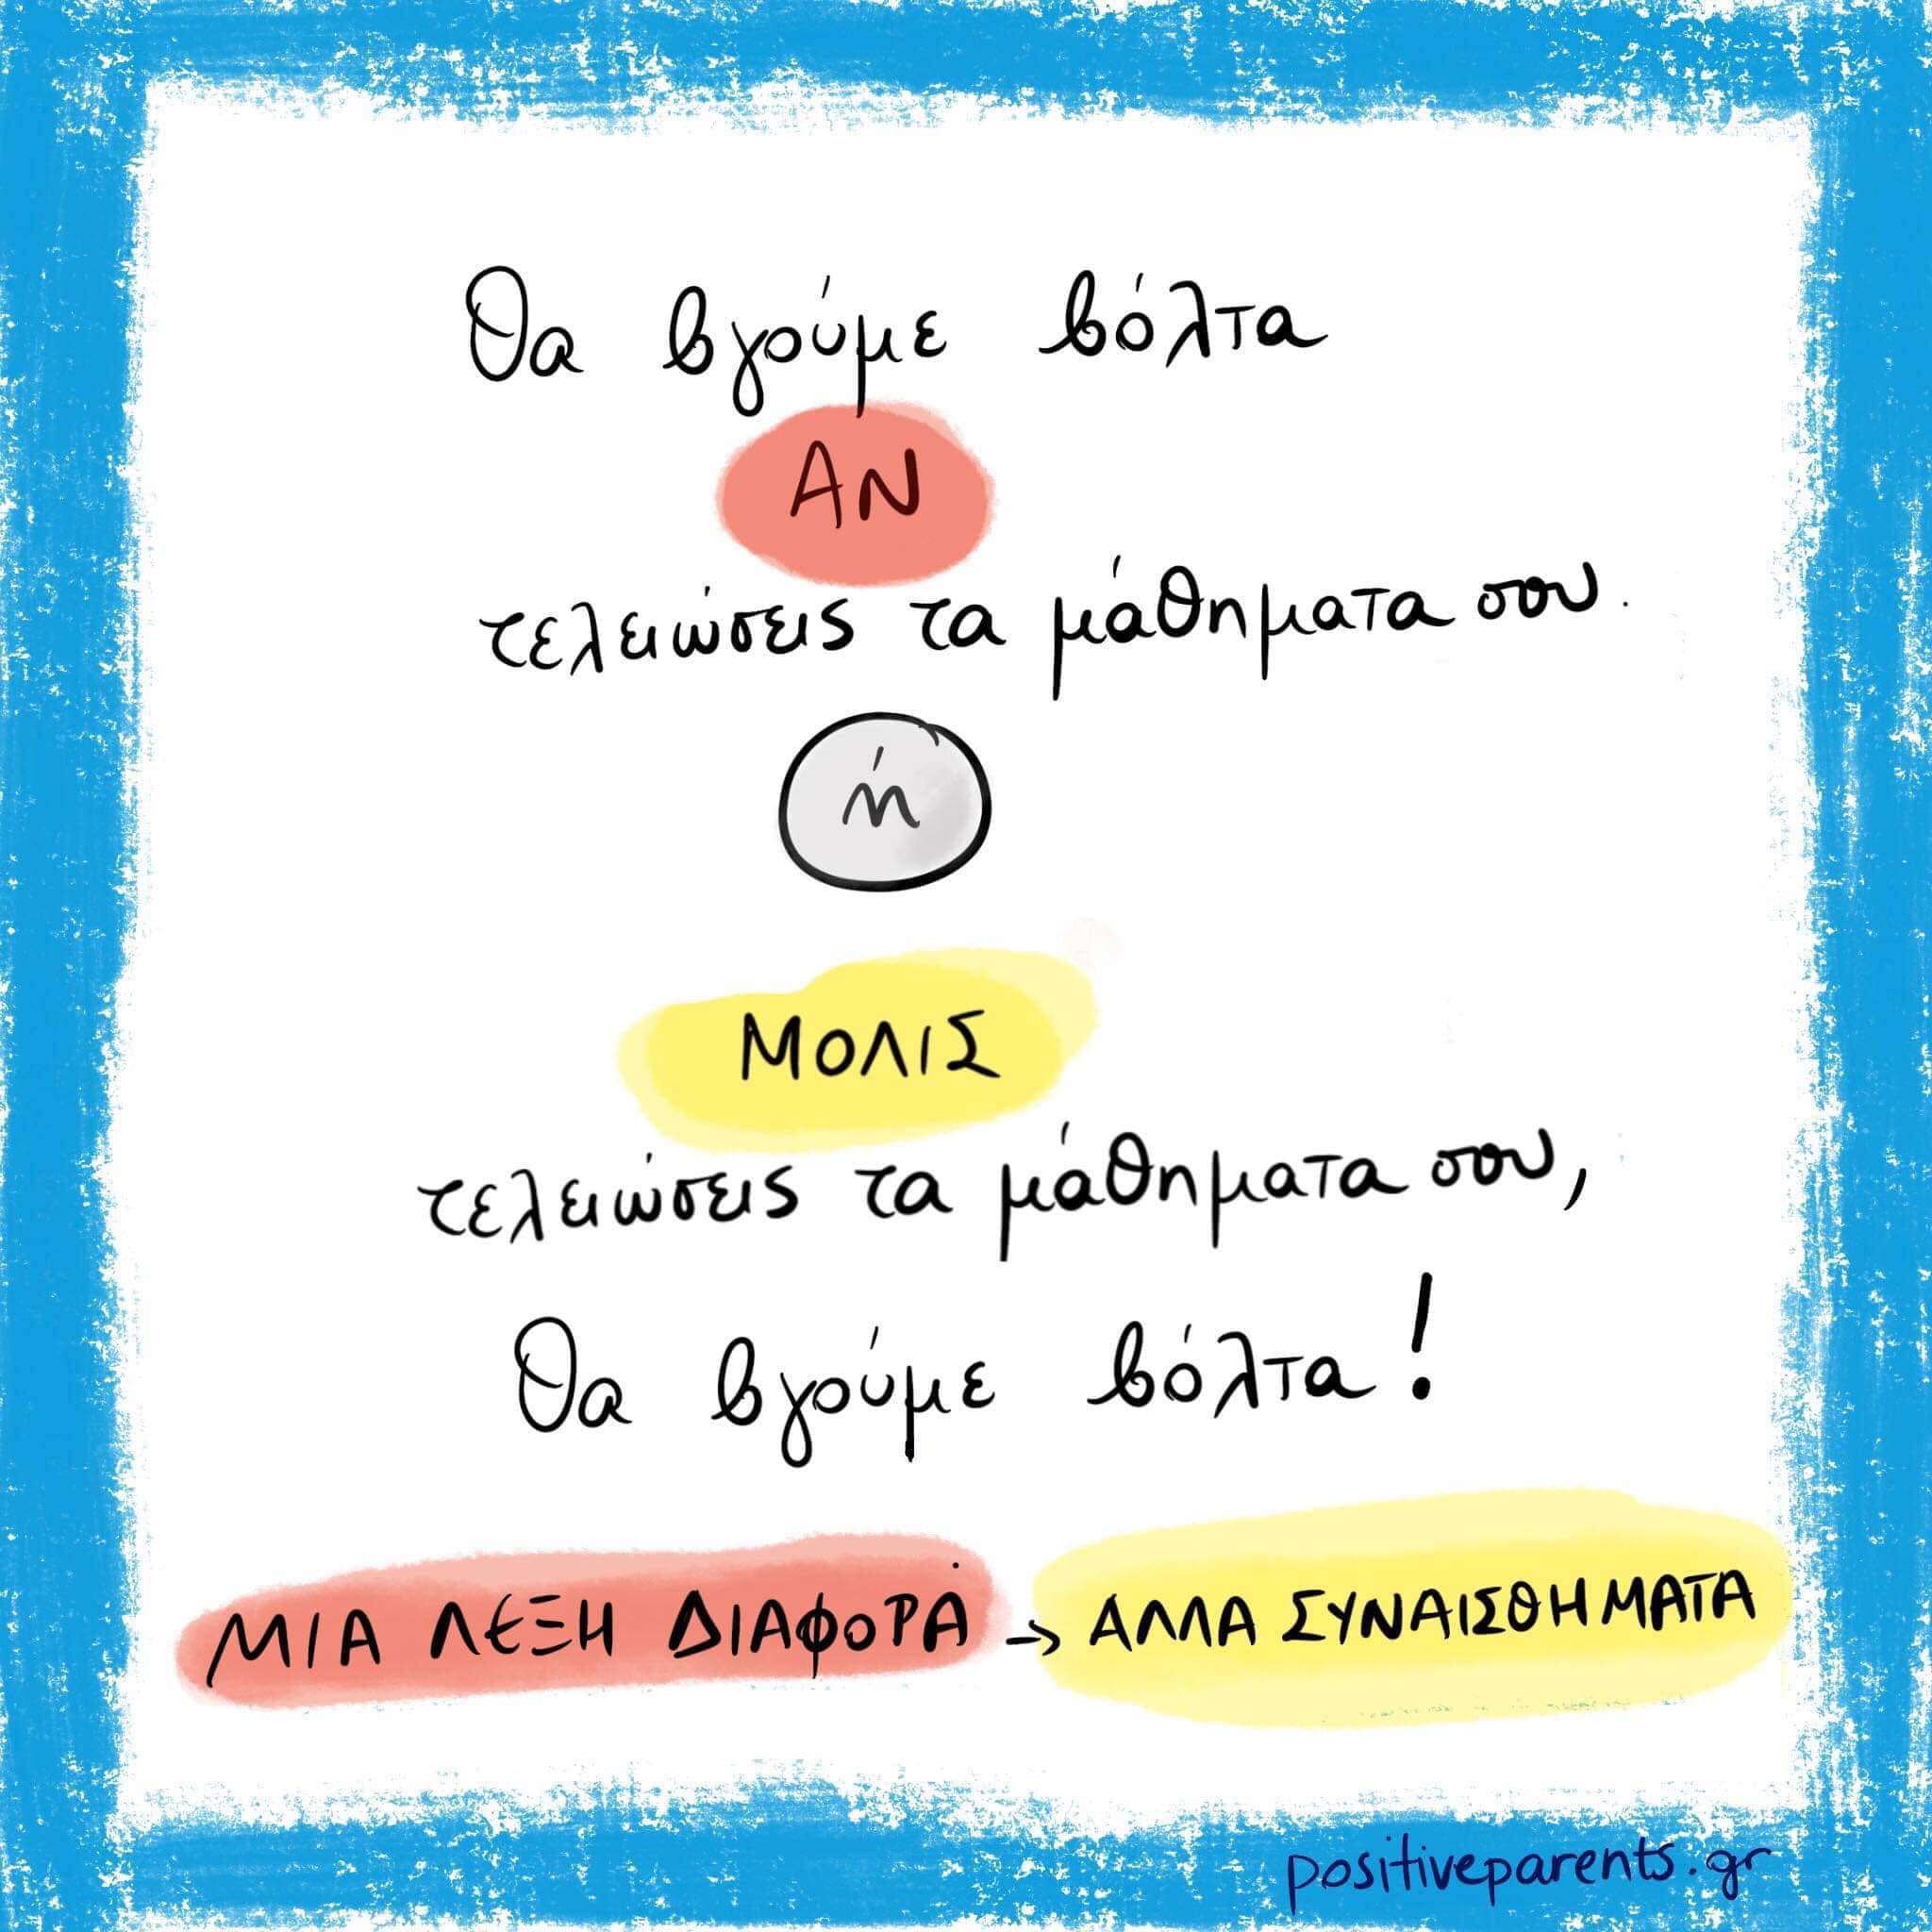 Θα βγούμε βόλτα
ΑΝ
τελειώσεις τα μάθηματα σου.
ή
ΜΟΛΙΣ
τελειώσεις τα μάθηματα σου,
Θα βγούμε βόλτα!
ΜΙΑ ΛΕΞΗ ΔΙΑΦΟΡΑ → ΑΛΛΑ ΣΥΝΑΙΣΘΗΜΑΤΑ
positiveparents.gr